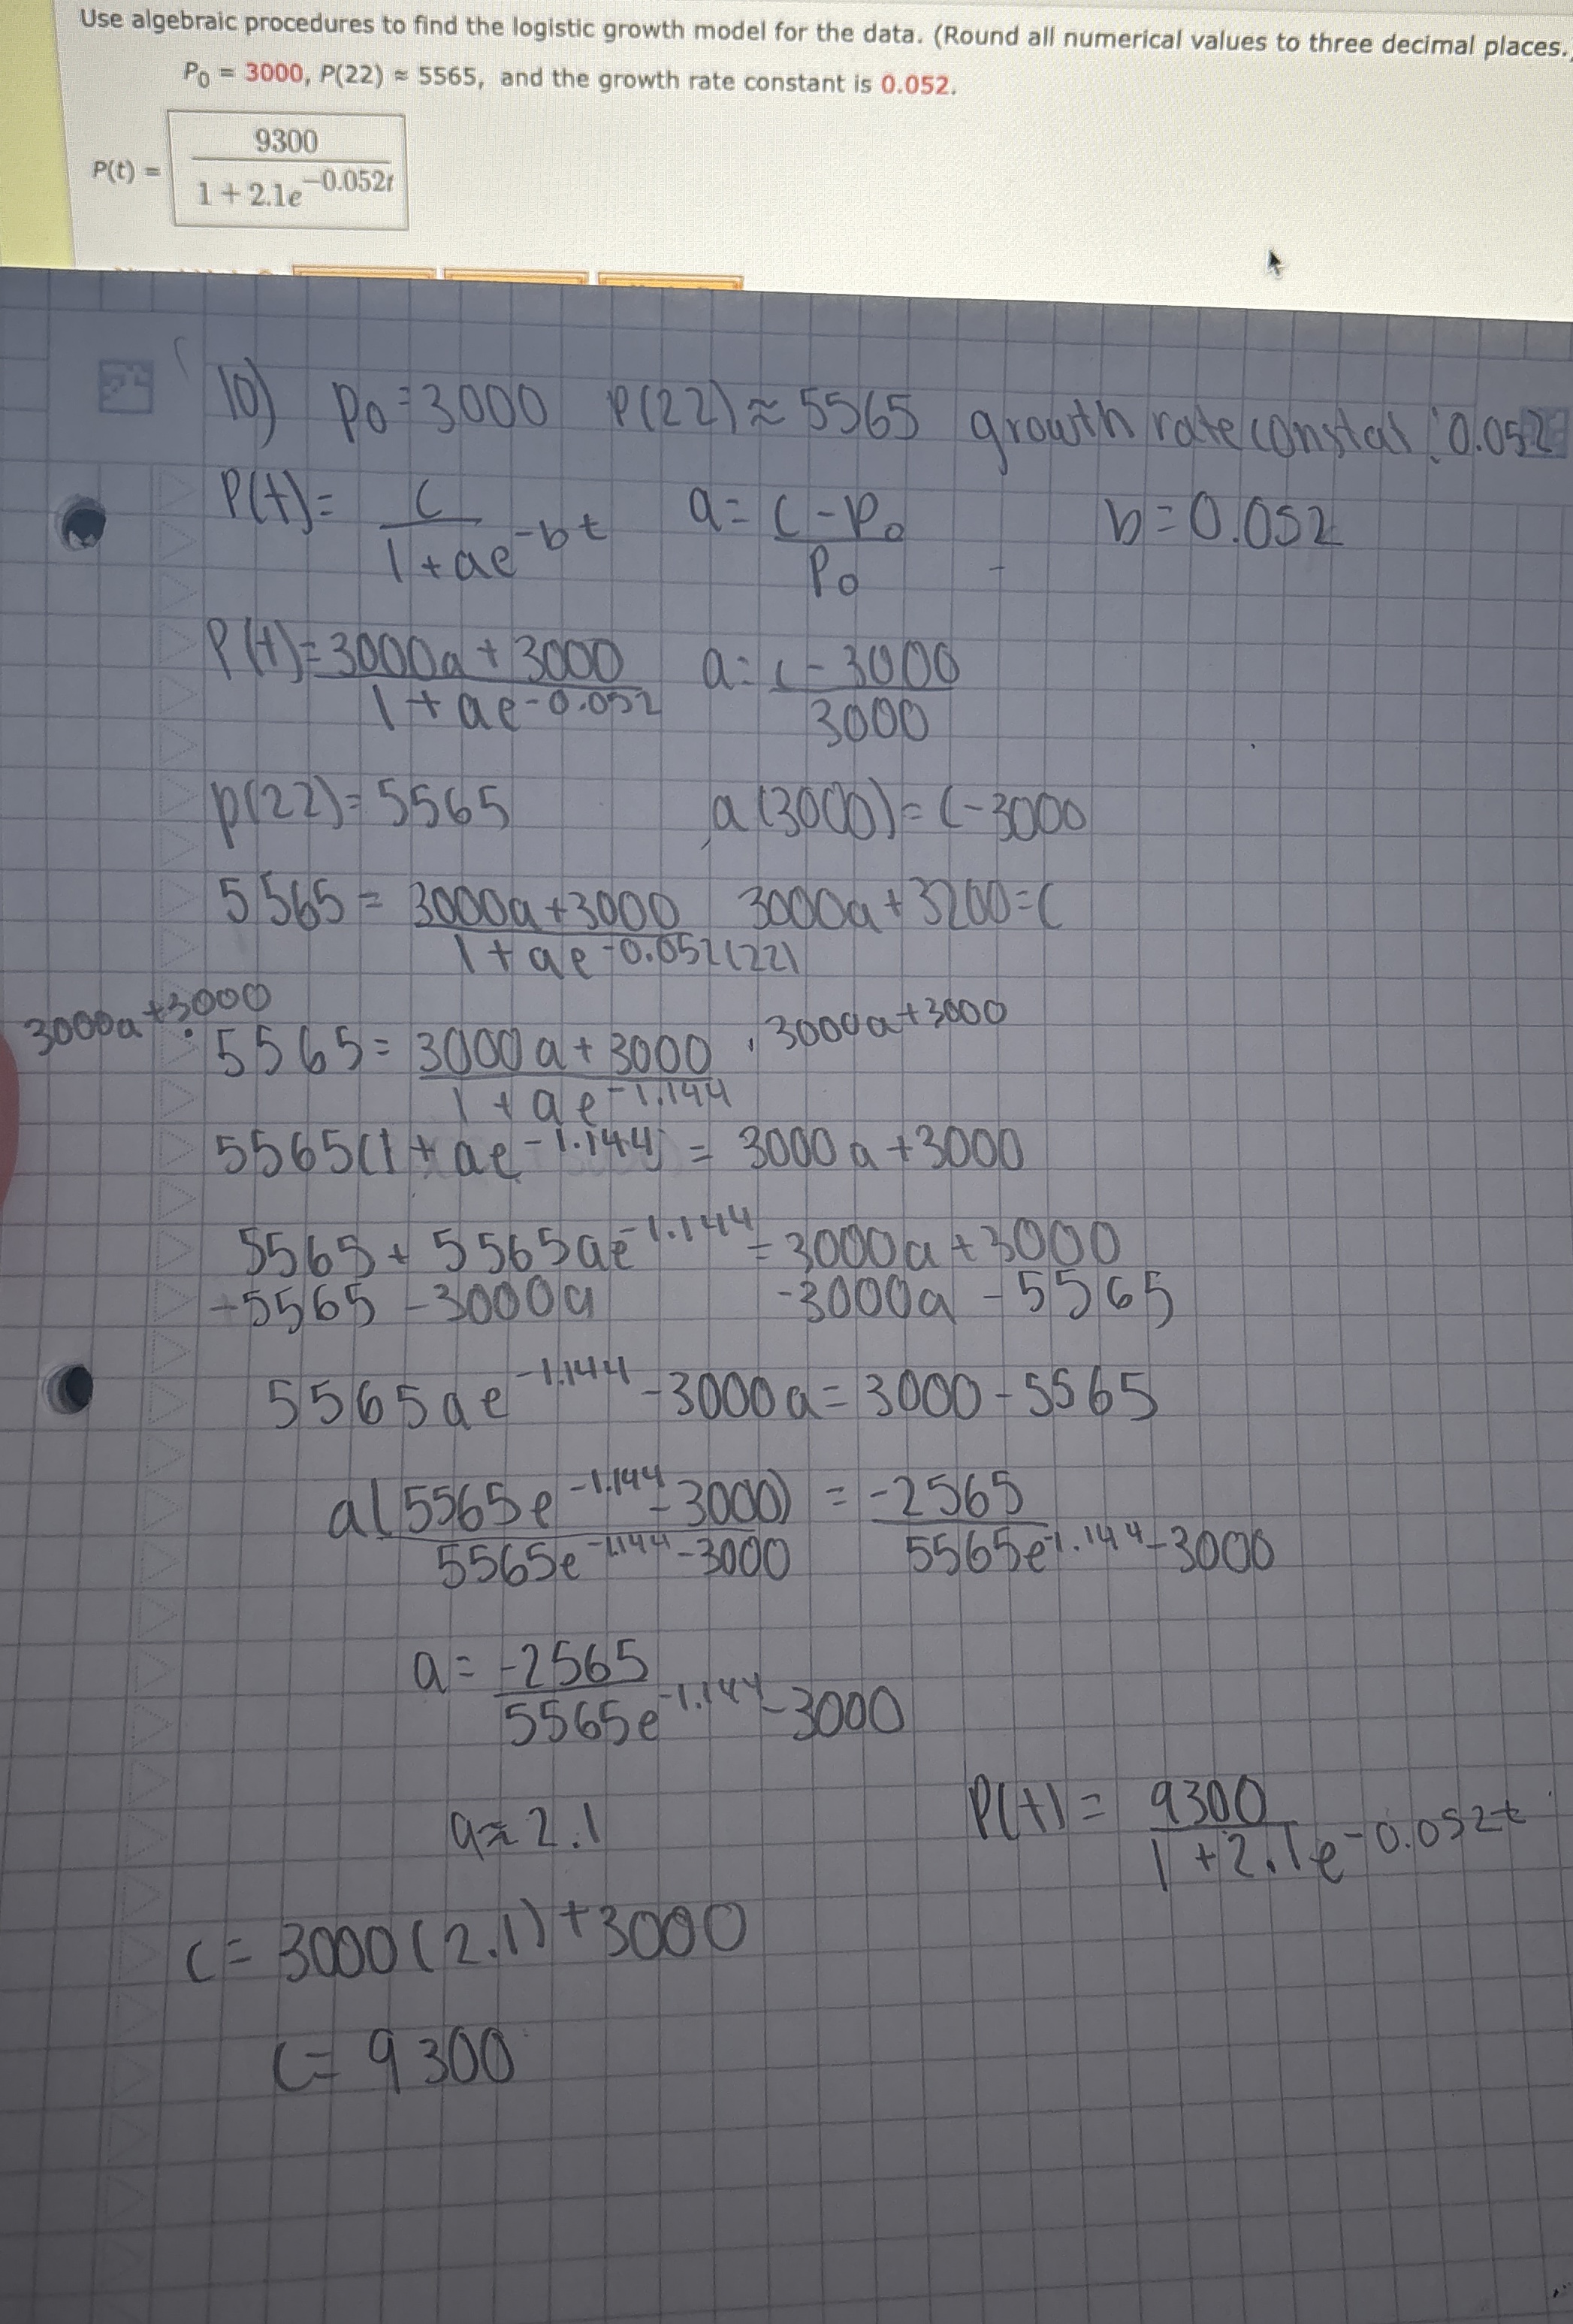 Use algebraic procedures to find the logistic growth model for the data. (Round all numerical values to three decimal places.
P₀ = 3000, P(22) ≈ 5565, and the growth rate constant is 0.052.
P(t) = 9300 / 1 + 2.1e^-0.052t
10) P₀ = 3000 P(22) ≈ 5565 growth rate constat : 0.052
P(t) = c / 1 + ae^-bt a = c - P₀ / P₀ b = 0.052
P(t) = 3000a + 3000 / 1 + ae^-0.052 a = c - 3000 / 3000
p(22) = 5565 a(3000) = c - 3000
5565 = 3000a + 3000 / 1 + ae^-0.052(22) 3000a + 3200 = c
3000a + 3000 · 5565 = 3000a + 3000 / 1 + ae^-1.144 · 3000a + 3000
5565(1 + ae^-1.144) = 3000a + 3000
5565 + 5565ae^-1.144 = 3000a + 3000
-5565 - 3000a -3000a - 5565
5565ae^-1.144 - 3000a = 3000 - 5565
a(5565e^-1.144 - 3000) / 5565e^-1.144 - 3000 = -2565 / 5565e^-1.144 - 3000
a = -2565 / 5565e^-1.144 - 3000
a ≈ 2.1
P(t) = 9300 / 1 + 2.1e^-0.052t
c = 3000(2.1) + 3000
c = 9300